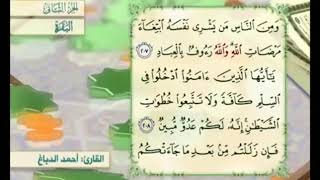 الجزء الثاني
البقرة
وَمِنَ النَّاسِ مَن يَشْرِي نَفْسَهُ ابْتِغَاءَ
مَرْضَاتِ اللَّهِ وَاللَّهُ رَءُوفٌ بِالْعِبَادِ ٢٠٧
يَا أَيُّهَا الَّذِينَ ءَامَنُوا ادْخُلُوا فِي
السِّلْمِ كَافَّةً وَلَا تَتَّبِعُوا خُطُوَاتِ
الشَّيْطَانِ إِنَّهُ لَكُمْ عَدُوٌّ مُّبِينٌ ٢٠٨
فَإِن زَلَلْتُم مِّن بَعْدِ مَا جَاءَتْكُمُ
القارئ: أحمد الدباغ